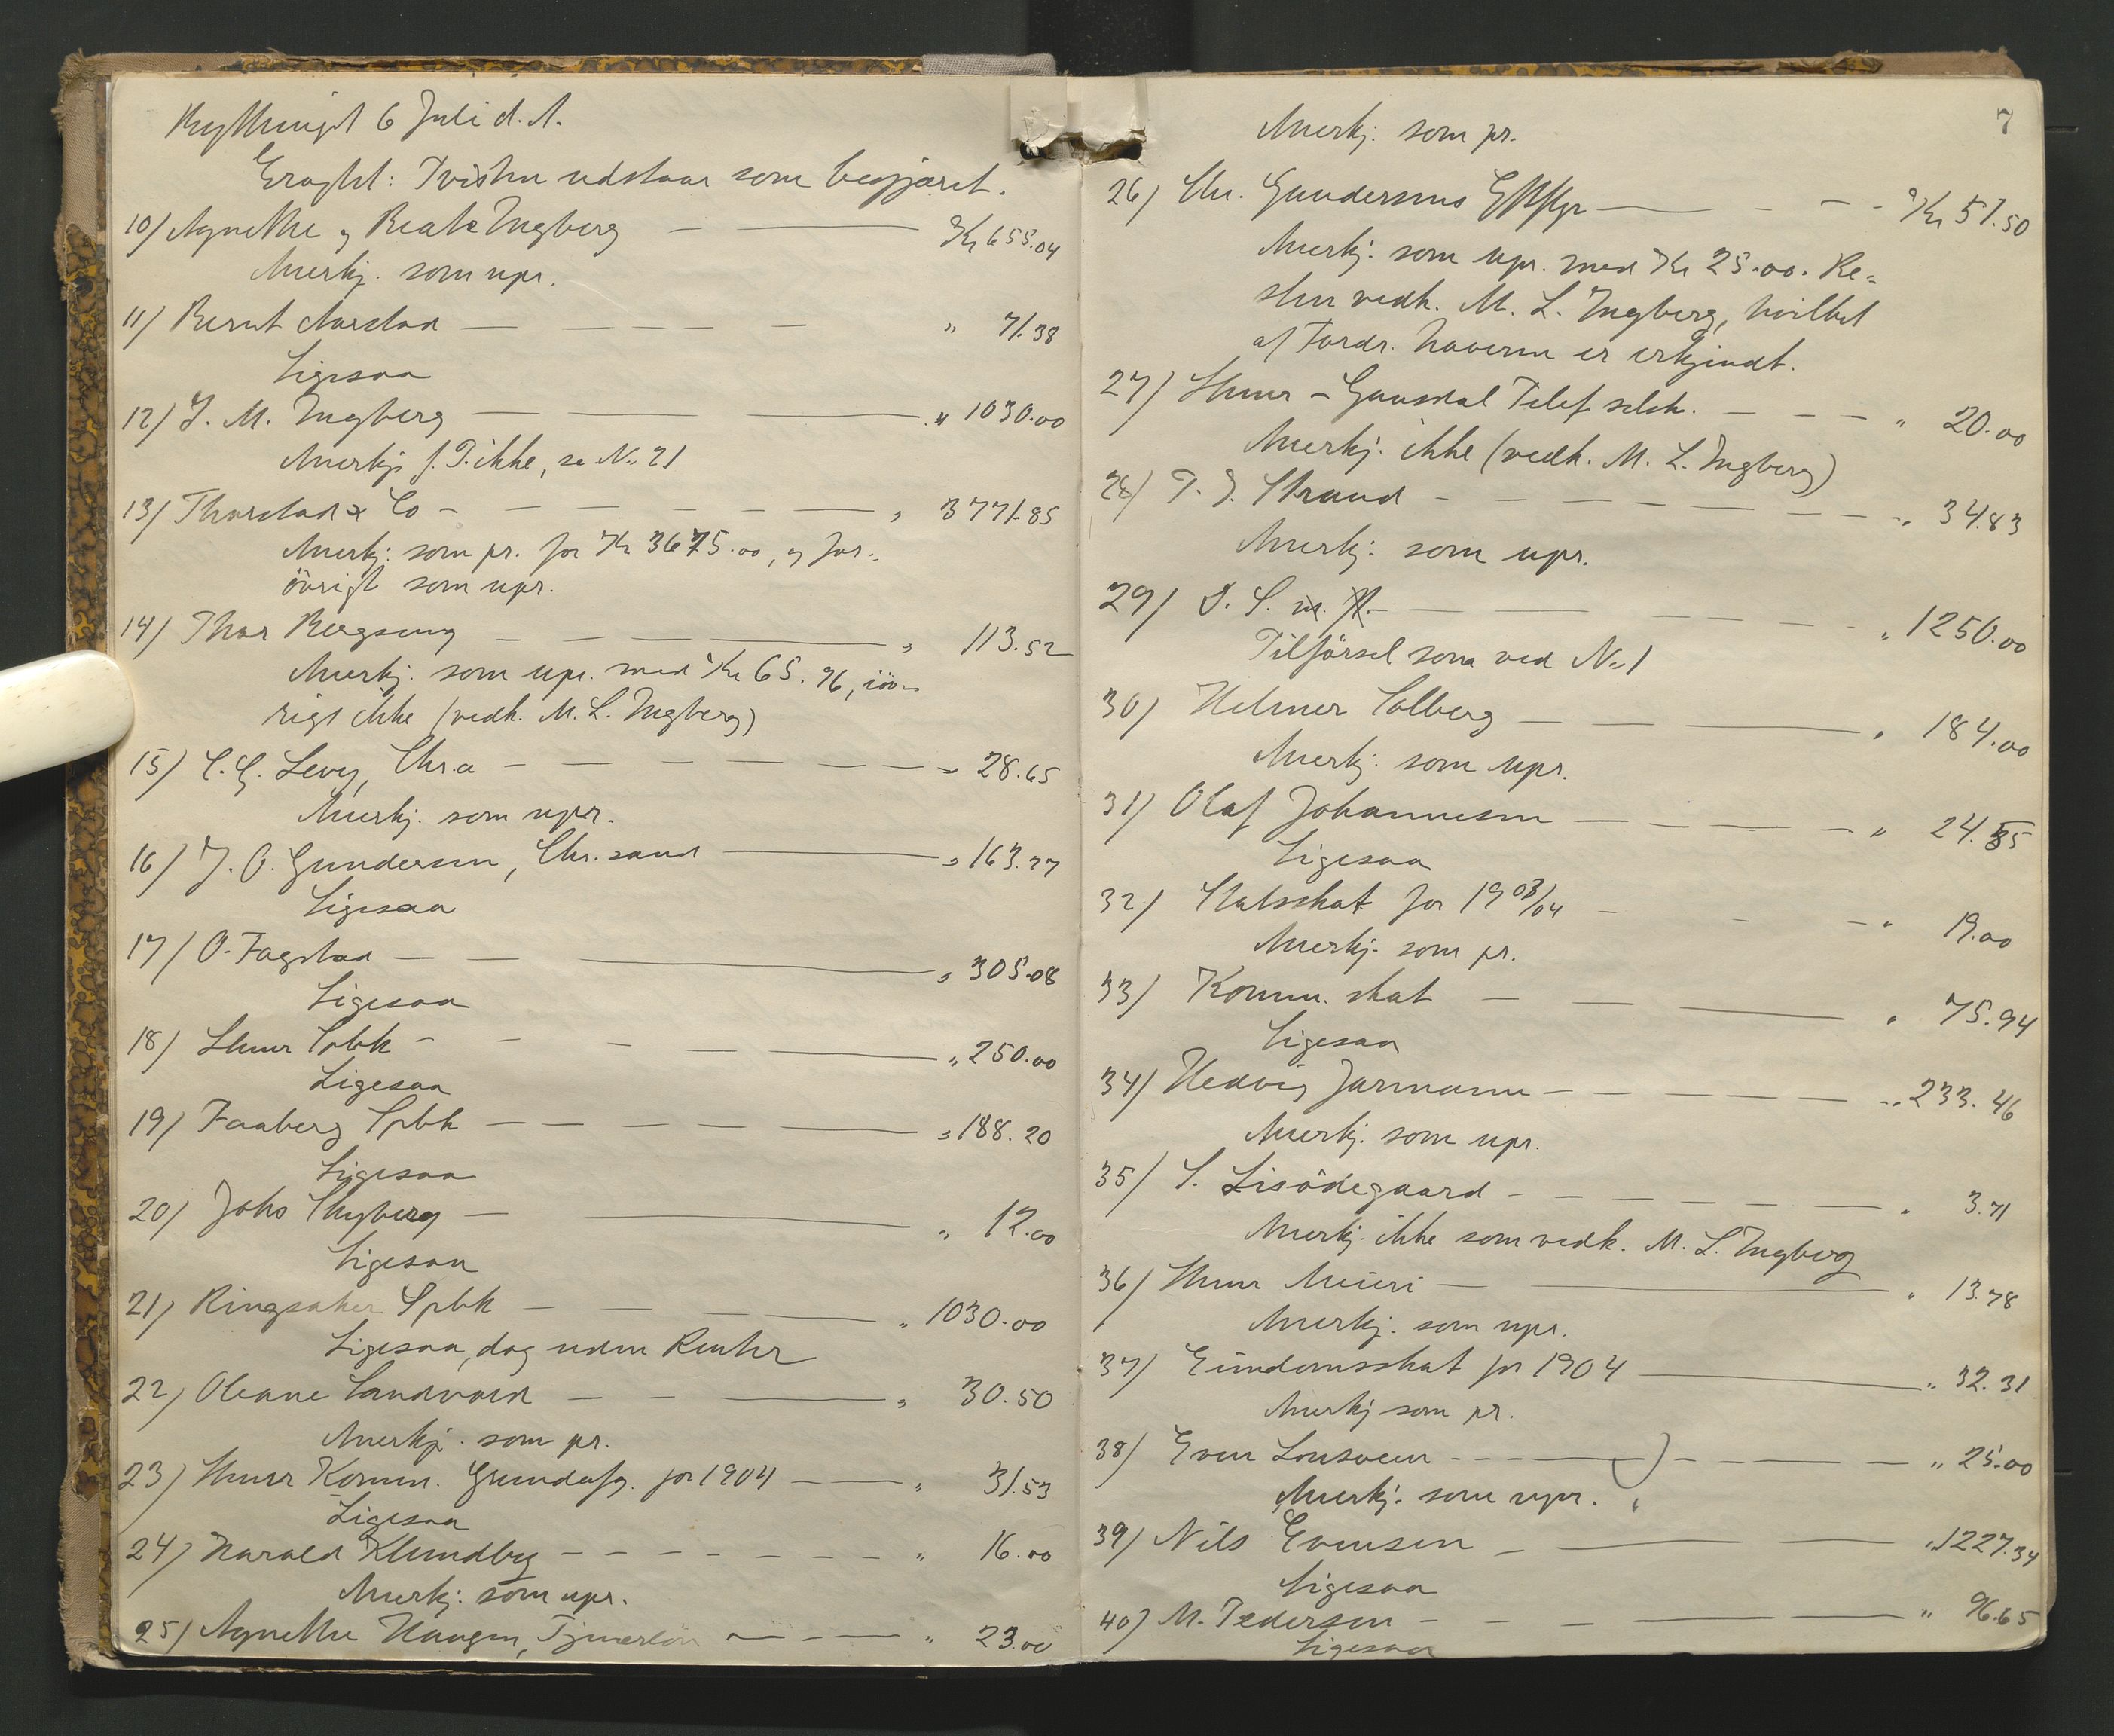 6 Juli d. A.
Eragtet: Tvisten udstaar som begjæret.
10) Agnethe og Beate Ingberg — Kr 655.04
Anerkj. som upr.
11) Bernt Aarstad — " 71.38
Ligesaa
12) J. M. Ingberg — " 1030.00
Anerkj. f. T. ikke, se No. 21
13) Thorstad & Co — " 3771.85
Anerkj. som pr. for Kr 3675.00, og for-
övrigt som upr.
14) Thor Bergseng — " 113.52
Anerkj. som upr. med Kr 65.96, iöv-
rigt ikke (vedk. M. L. Ingberg)
15) C. G. Levy, Chr.a — " 28.65
Anerkj. som upr.
16) J. O. Gundersen, Chr.sand — " 163.77
Ligesaa
17) O. Fagstad — " 305.08
Ligesaa
18) Lhmr Spbk — " 250.00
Ligesaa
19) Faaberg Spbk — " 188.20
Ligesaa
20) Johs Skyberg — " 12.00
Ligesaa
21) Ringsaker Spbk — " 1030.00
Ligesaa, dog uden Renter
22) Oleane Sandvold — " 30.50
Anerkj. som pr.
23) Lhmr Komm. Grundafg. for 1904 — " 31.53
Ligesaa
24) Harald Klundby — " 16.00
Anerkj. som upr.
25) Agnethe Haugen, Tjenerlön — " 23.00
7
Anerkj. som pr.
26) Chr. Gundersens Efflgr — Kr 51.50
Anerkj. som upr. med Kr 25.00. Re-
sten vedk. M. L. Ingberg, hvilket
af Fordr. haveren er erkjendt.
27) Lhmr - Gausdal Telef selsk. — " 20.00
Anerkj. ikke (vedk. M. L. Ingberg)
28) T. J. Strand — " 34.83
Anerkj. som upr.
29) D. S. — " 1250.00
Tilförsel som ved No. 1
30) Helmer Solberg — " 184.00
Anerkj. som upr.
31) Olaf Johannesen — " 24.85
Ligesaa
32) Statsskat for 1903/04 — " 19.00
Anerkj. som pr.
33) Komm. skat — " 75.94
Ligesaa
34) Hedvig Jarmann — " 233.46
Anerkj. som upr.
35) S. Lisödegaard — " 3.71
Anerkj. ikke som vedk. M. L. Ingberg
36) Lhmr Meieri — " 13.78
Anerkj. som upr.
37) Eiendomsskat for 1904 — " 32.31
Anerkj som pr.
38) Even Lonsveen — " 25.00
Anerkj. som upr.
39) Nils Evensen — " 1227.34
Ligesaa
40) M. Pedersen — " 96.65
Ligesaa